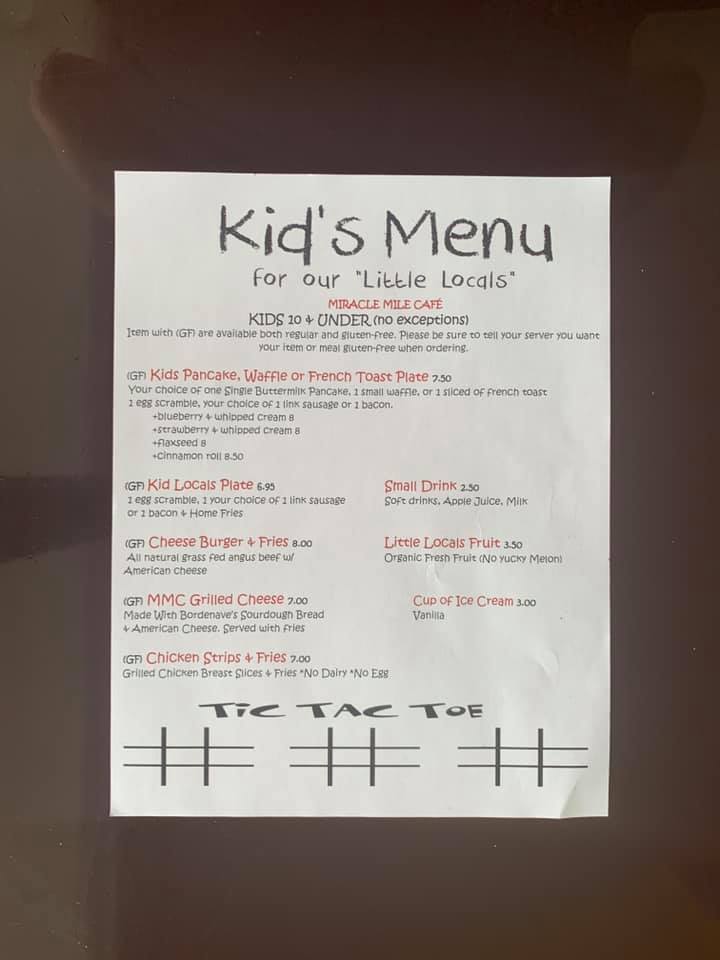 Kid's Menu
for our "Little Locals"
MIRACLE MILE CAFÉ
KIDS 10 & UNDER (no exceptions)
Item with (GF) are available both regular and gluten-free. Please be sure to tell your server you want
your item or meal gluten-free when ordering.
(GF) Kids Pancake, Waffle or French Toast Plate 7.50
Your choice of one Single Buttermilk Pancake, 1 small waffle, or 1 sliced of french toast
1 egg scramble, your choice of 1 link sausage or 1 bacon.
+blueberry & whipped cream 8
+strawberry & whipped cream 8
+flaxseed 8
+cinnamon roll 8.50
(GF) Kid Locals Plate 6.95
1 egg scramble, 1 your choice of 1 link sausage
or 1 bacon & Home Fries
Small Drink 2.50
Soft drinks, Apple Juice, Milk
(GF) Cheese Burger & Fries 8.00
All natural grass fed angus beef w/
American cheese
Little Locals Fruit 3.50
Organic Fresh Fruit (No yucky Melon)
(GF) MMC Grilled Cheese 7.00
Made With Bordenave's Sourdough Bread
& American Cheese. Served with fries
Cup of Ice Cream 3.00
Vanilla
(GF) Chicken Strips & Fries 7.00
Grilled Chicken Breast Slices & Fries *No Dairy *No Egg
TIC TAC TOE